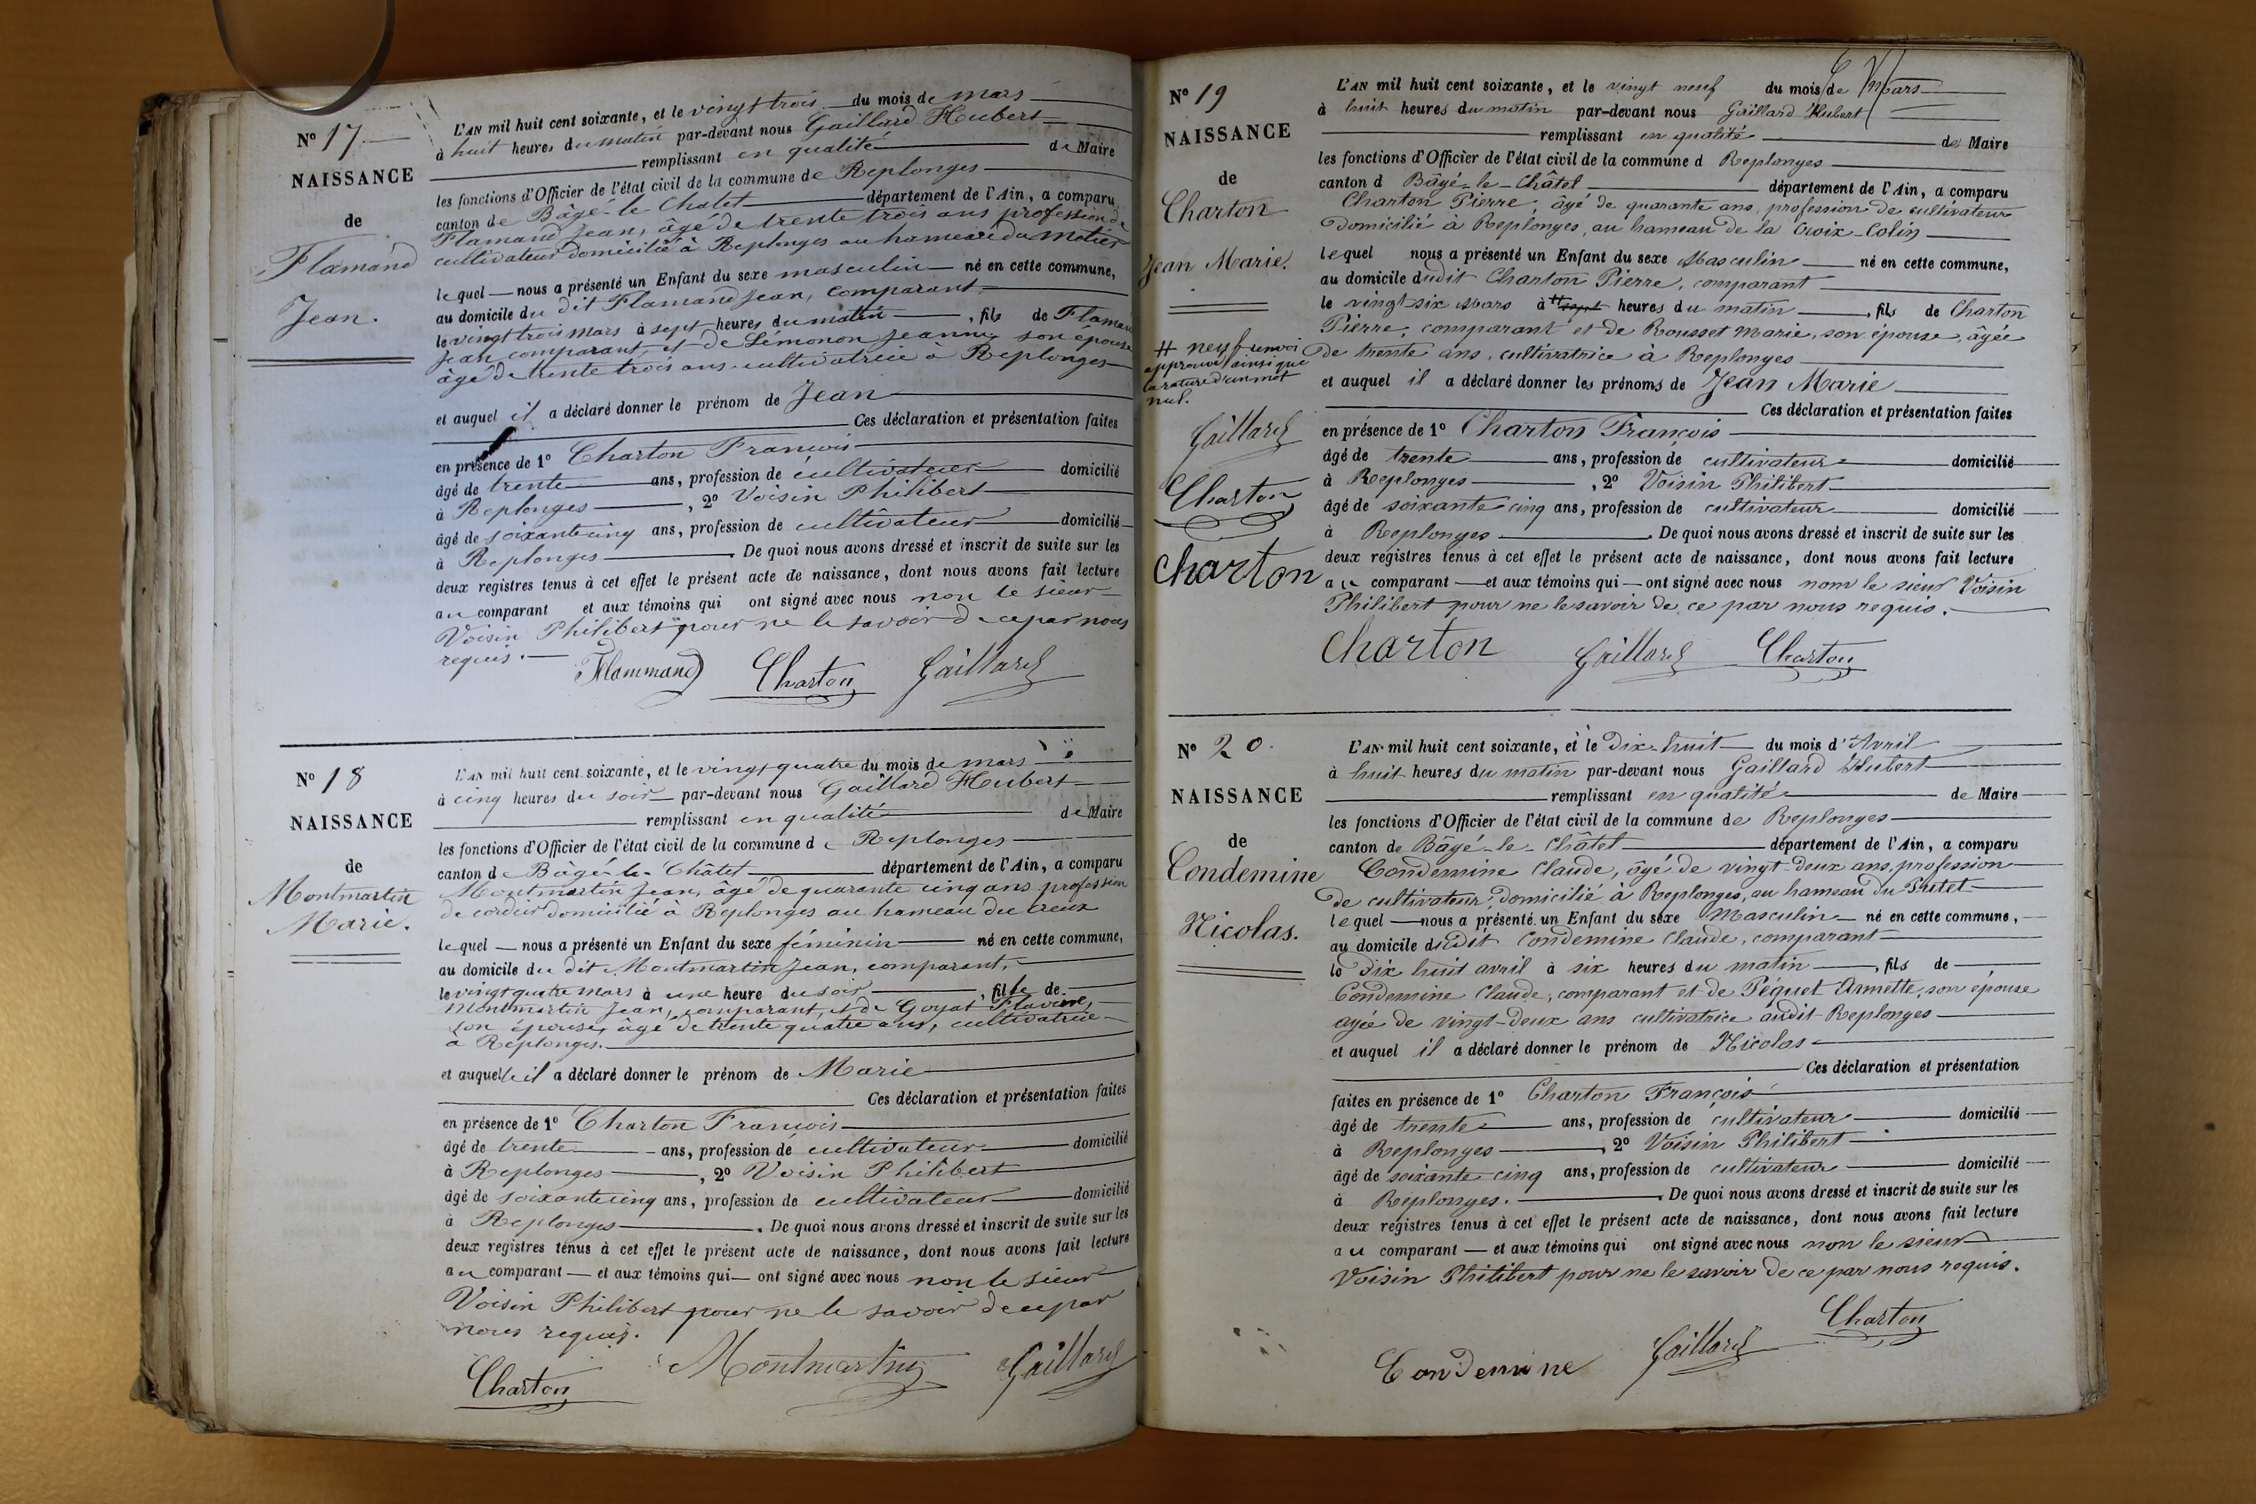 N° 17
NAISSANCE
de
Flamand
Jean.
L'AN mil huit cent soixante, et le vingt trois du mois de mars
à huit heures du matin par-devant nous Gaillard Hubert
remplissant en qualité de Maire
les fonctions d'Officier de l'état civil de la commune de Replonges
canton de Bâgé-le Chatel département de l'Ain, a comparu
Flamand Jean, âgé de trente trois ans profession de
cultivateur domicilié à Replonges au hameau du
lequel nous a présenté un Enfant du sexe masculin né en cette commune,
au domicile du dit Flamand Jean, comparant,
le vingt trois mars à sept heures du matin, fils de Flamand
Jean comparant, et de Lémonon Jeanne son épouse
âgé de trente trois ans cultivatrice à Replonges
et auquel il a déclaré donner le prénom de Jean
Ces déclaration et présentation faites
en présence de 1° Charton Francois
âgé de trente ans, profession de cultivateur domicilié
à Replonges, 2° Voisin Philibert
âgé de soixante cinq ans, profession de cultivateur domicilié
à Replonges. De quoi nous avons dressé et inscrit de suite sur les
deux registres tenus à cet effet le présent acte de naissance, dont nous avons fait lecture
au comparant et aux témoins qui ont signé avec nous non le sieur
Voisin Philibert pour ne le savoir de ce par nous
requis.
Flammand Charton Gaillard
N° 18
NAISSANCE
de
Montmartin
Marie.
L'AN mil huit cent soixante, et le vingt quatre du mois de mars
à cinq heures du soir par-devant nous Gaillard Hubert
remplissant en qualité de Maire
les fonctions d'Officier de l'état civil de la commune de Replonges
canton de Bâgé-le-Châtel département de l'Ain, a comparu
Montmartin Jean, âgé de quarante cinq ans profession
de cordier domicilié à Replonges au hameau du creux
lequel nous a présenté un Enfant du sexe féminin né en cette commune,
au domicile du dit Montmartin Jean, comparant,
le vingt quatre mars à une heure du soir, fille de
Montmartin Jean, comparant, et de Goyat Flavine,
son épouse, âgé de trente quatre ans, cultivatrice
à Replonges.
et auquelle il a déclaré donner le prénom de Marie
Ces déclaration et présentation faites
en présence de 1° Charton Francois
âgé de trente ans, profession de cultivateur domicilié
à Replonges, 2° Voisin Philibert
âgé de soixante cinq ans, profession de cultivateur domicilié
à Replonges. De quoi nous avons dressé et inscrit de suite sur les
deux registres tenus à cet effet le présent acte de naissance, dont nous avons fait lecture
au comparant et aux témoins qui ont signé avec nous non le sieur
Voisin Philibert pour ne le savoir de ce par
nous requis.
Charton Montmartin Gaillard
N° 19
NAISSANCE
de
Charton
Jean Marie.
# neuf renvoi
approuvé ainsi que
la rature d'un mot
nul.
Gaillard
Charton
Charton
L'AN mil huit cent soixante, et le vingt neuf du mois de Mars
à huit heures du matin par-devant nous Gaillard Hubert
remplissant en qualité de Maire
les fonctions d'Officier de l'état civil de la commune d Replonges
canton d Bâgé-le-Châtel département de l'Ain, a comparu
Charton Pierre, âgé de quarante ans, profession de cultivateur
domicilié à Replonges, au hameau de la Croix-Colin
lequel nous a présenté un Enfant du sexe Masculin né en cette commune,
au domicile dudit Charton Pierre, comparant
le vingt six Mars à # sept heures du matin, fils de Charton
Pierre, comparant et de Rousset Marie, son épouse, âgée
de trente ans, cultivatrice à Replonges
et auquel il a déclaré donner les prénoms de Jean Marie
Ces déclaration et présentation faites
en présence de 1° Charton François
âgé de trente ans, profession de cultivateur domicilié
à Replonges, 2° Voisin Philibert
âgé de soixante cinq ans, profession de cultivateur domicilié
à Replonges. De quoi nous avons dressé et inscrit de suite sur les
deux registres tenus à cet effet le présent acte de naissance, dont nous avons fait lecture
au comparant et aux témoins qui ont signé avec nous nom le sieur Voisin
Philibert pour ne le savoir de ce par nous requis.
Charton Gaillard Charton
N° 20.
NAISSANCE
de
Condemine
Nicolas.
L'AN mil huit cent soixante, et le Dix-huit du mois d'Avril
à huit heures du matin par-devant nous Gaillard Hubert
remplissant en qualité de Maire
les fonctions d'Officier de l'état civil de la commune de Replonges
canton de Bâgé-le-Châtel département de l'Ain, a comparu
Condemine Claude, âgé de vingt-deux ans, profession
de cultivateur, domicilié à Replonges, au hameau du
lequel nous a présenté un Enfant du sexe Masculin né en cette commune,
au domicile dudit Condemine Claude, comparant
le Dix huit avril à six heures du matin, fils de
Condemine Claude, comparant et de Péquet Annette, son épouse
agée de vingt-deux ans cultivatrice audit Replonges
et auquel il a déclaré donner le prénom de Nicolas
Ces déclaration et présentation
faites en présence de 1° Charton François
âgé de trente ans, profession de cultivateur domicilié
à Replonges, 2° Voisin Philibert
âgé de soixante cinq ans, profession de cultivateur domicilié
à Replonges. De quoi nous avons dressé et inscrit de suite sur les
deux registres tenus à cet effet le présent acte de naissance, dont nous avons fait lecture
au comparant et aux témoins qui ont signé avec nous non le sieur
Voisin Philibert pour ne le savoir de ce par nous requis.
Condemine Gaillard Charton